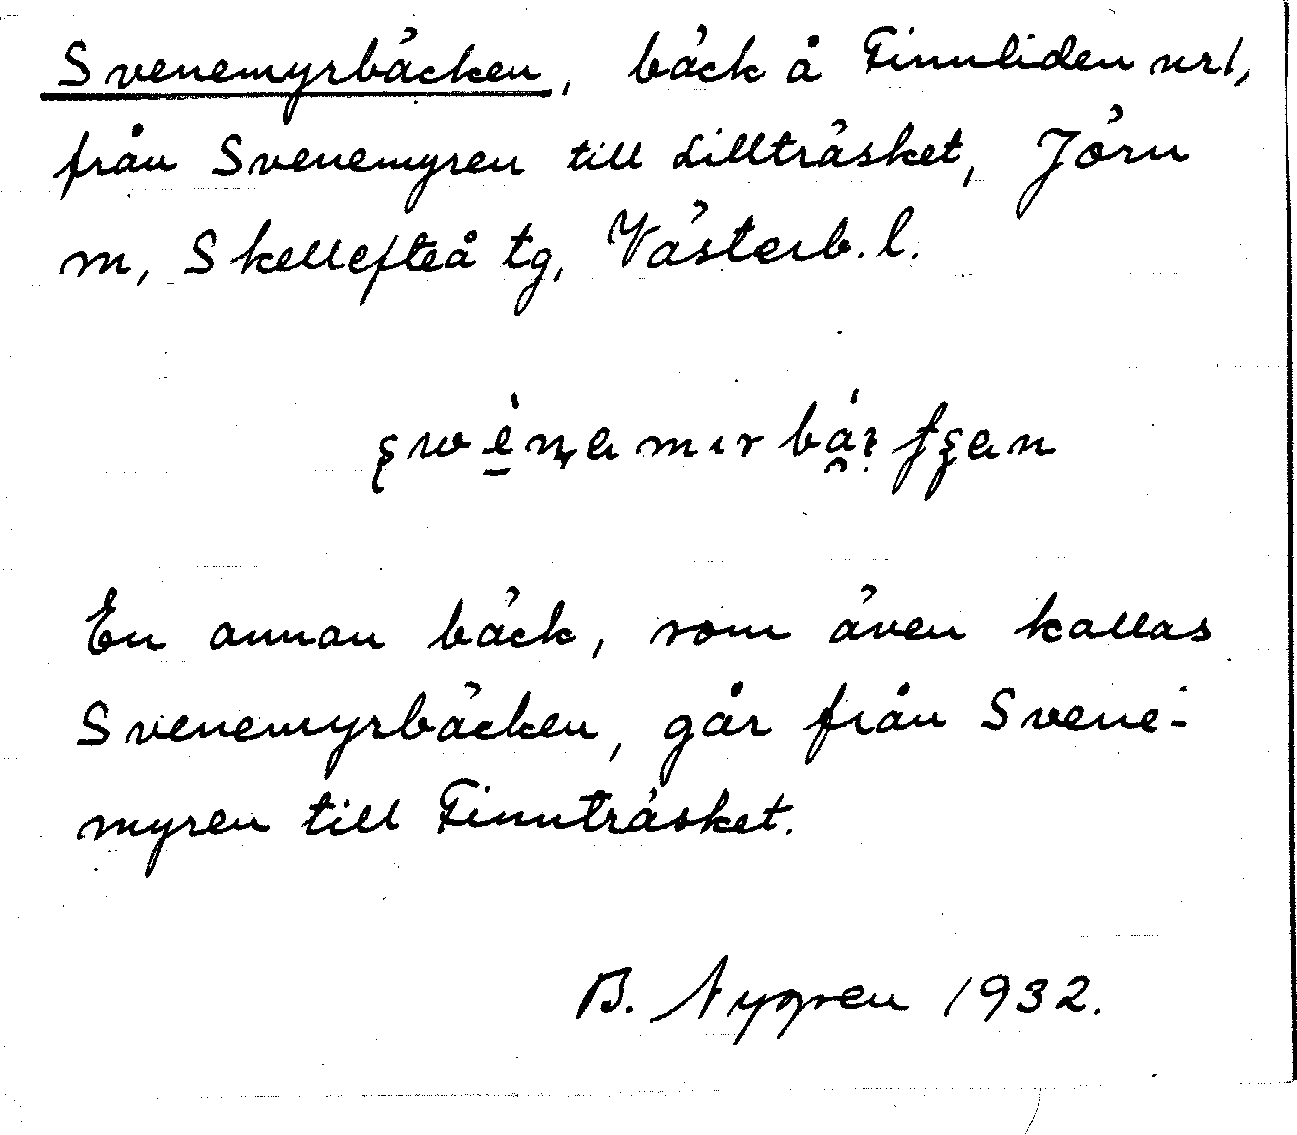 Svenemyrbäcken, bäck å Finnliden nr 1,
från Svenemyren till Lillträsket, Jörn
m, Skellefteå tg, Västerb. l.
En annan bäck, som även kallas
Svenemyrbäcken, går från Svene-
myren till Finnträsket.
B. Nygren 1932.